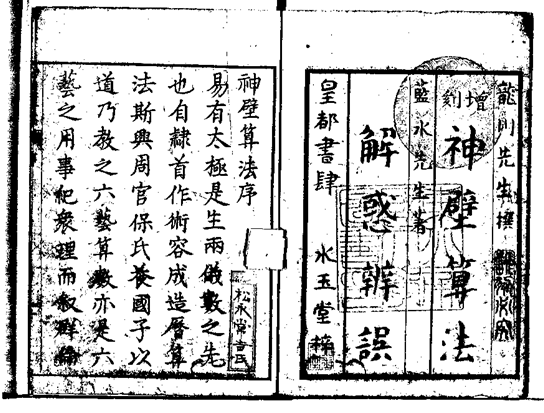 龍川先生撰
増刻
神壁算法
藍水先生著
解惑辨誤
皇都書肆 水玉堂梓
神壁算法序
易有太極是生兩儀數之先
也自隷首作術容成造暦算
法斯興周官保氏養國子以
道乃教之六藝算數亦是六
藝之用事紀衆理而叙群倫